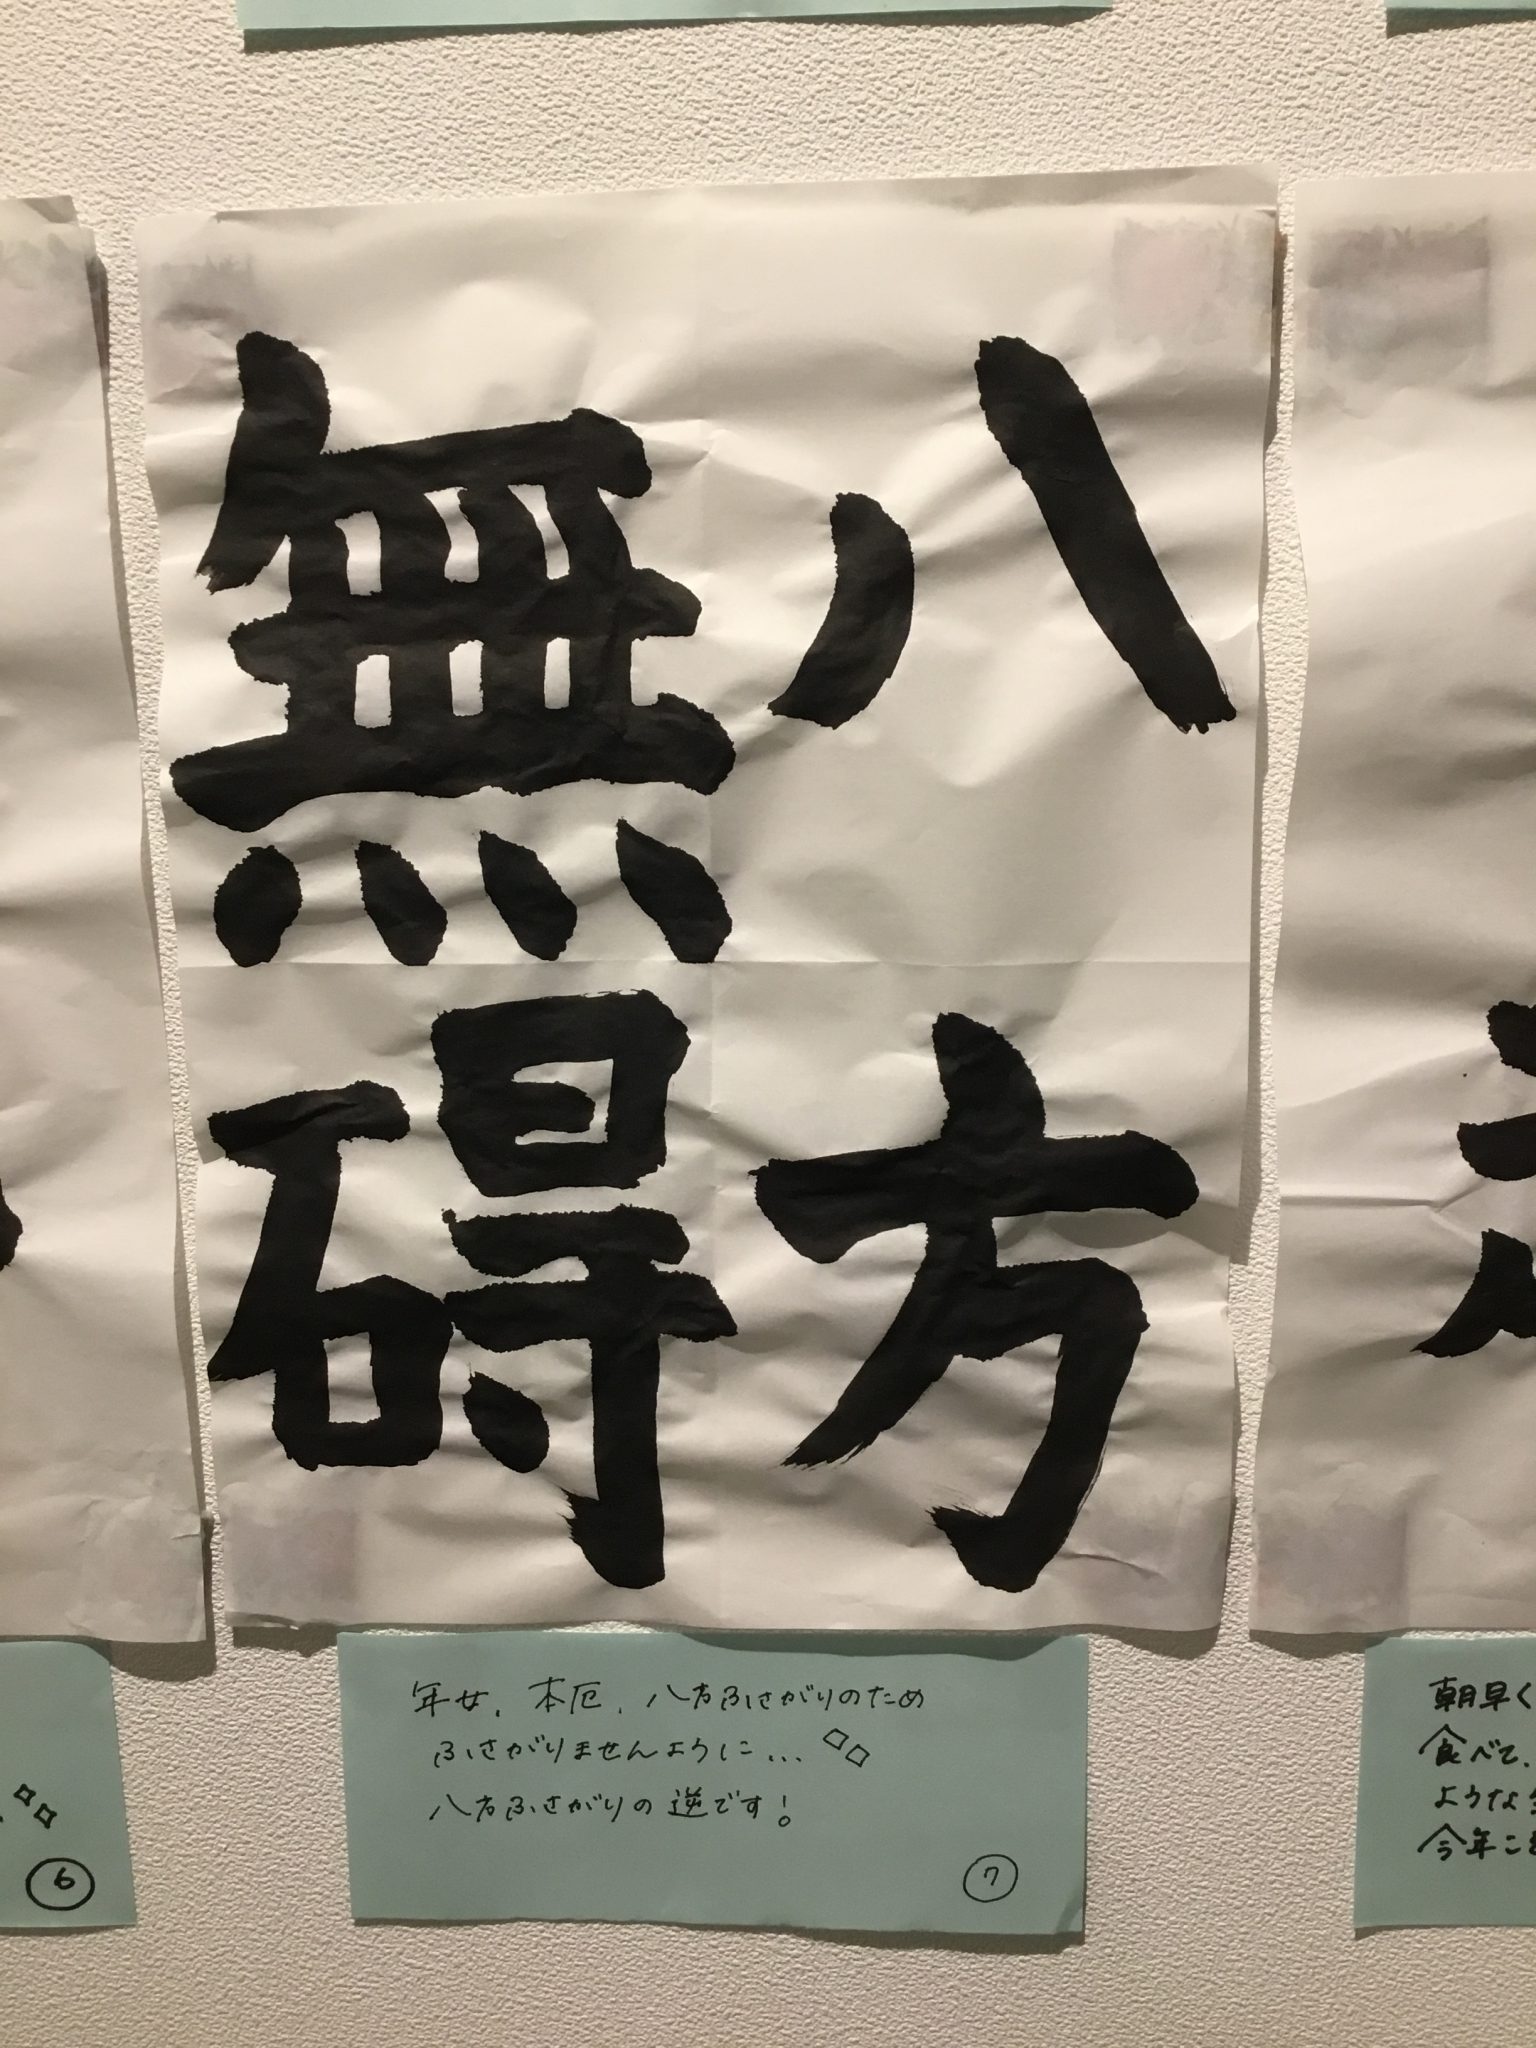 八方
無碍
年女、本厄、八方ふさがりのため
ふさがりませんように…
八方ふさがりの逆です!
⑦
⑥
朝早く
食べて、
ような
今年こ